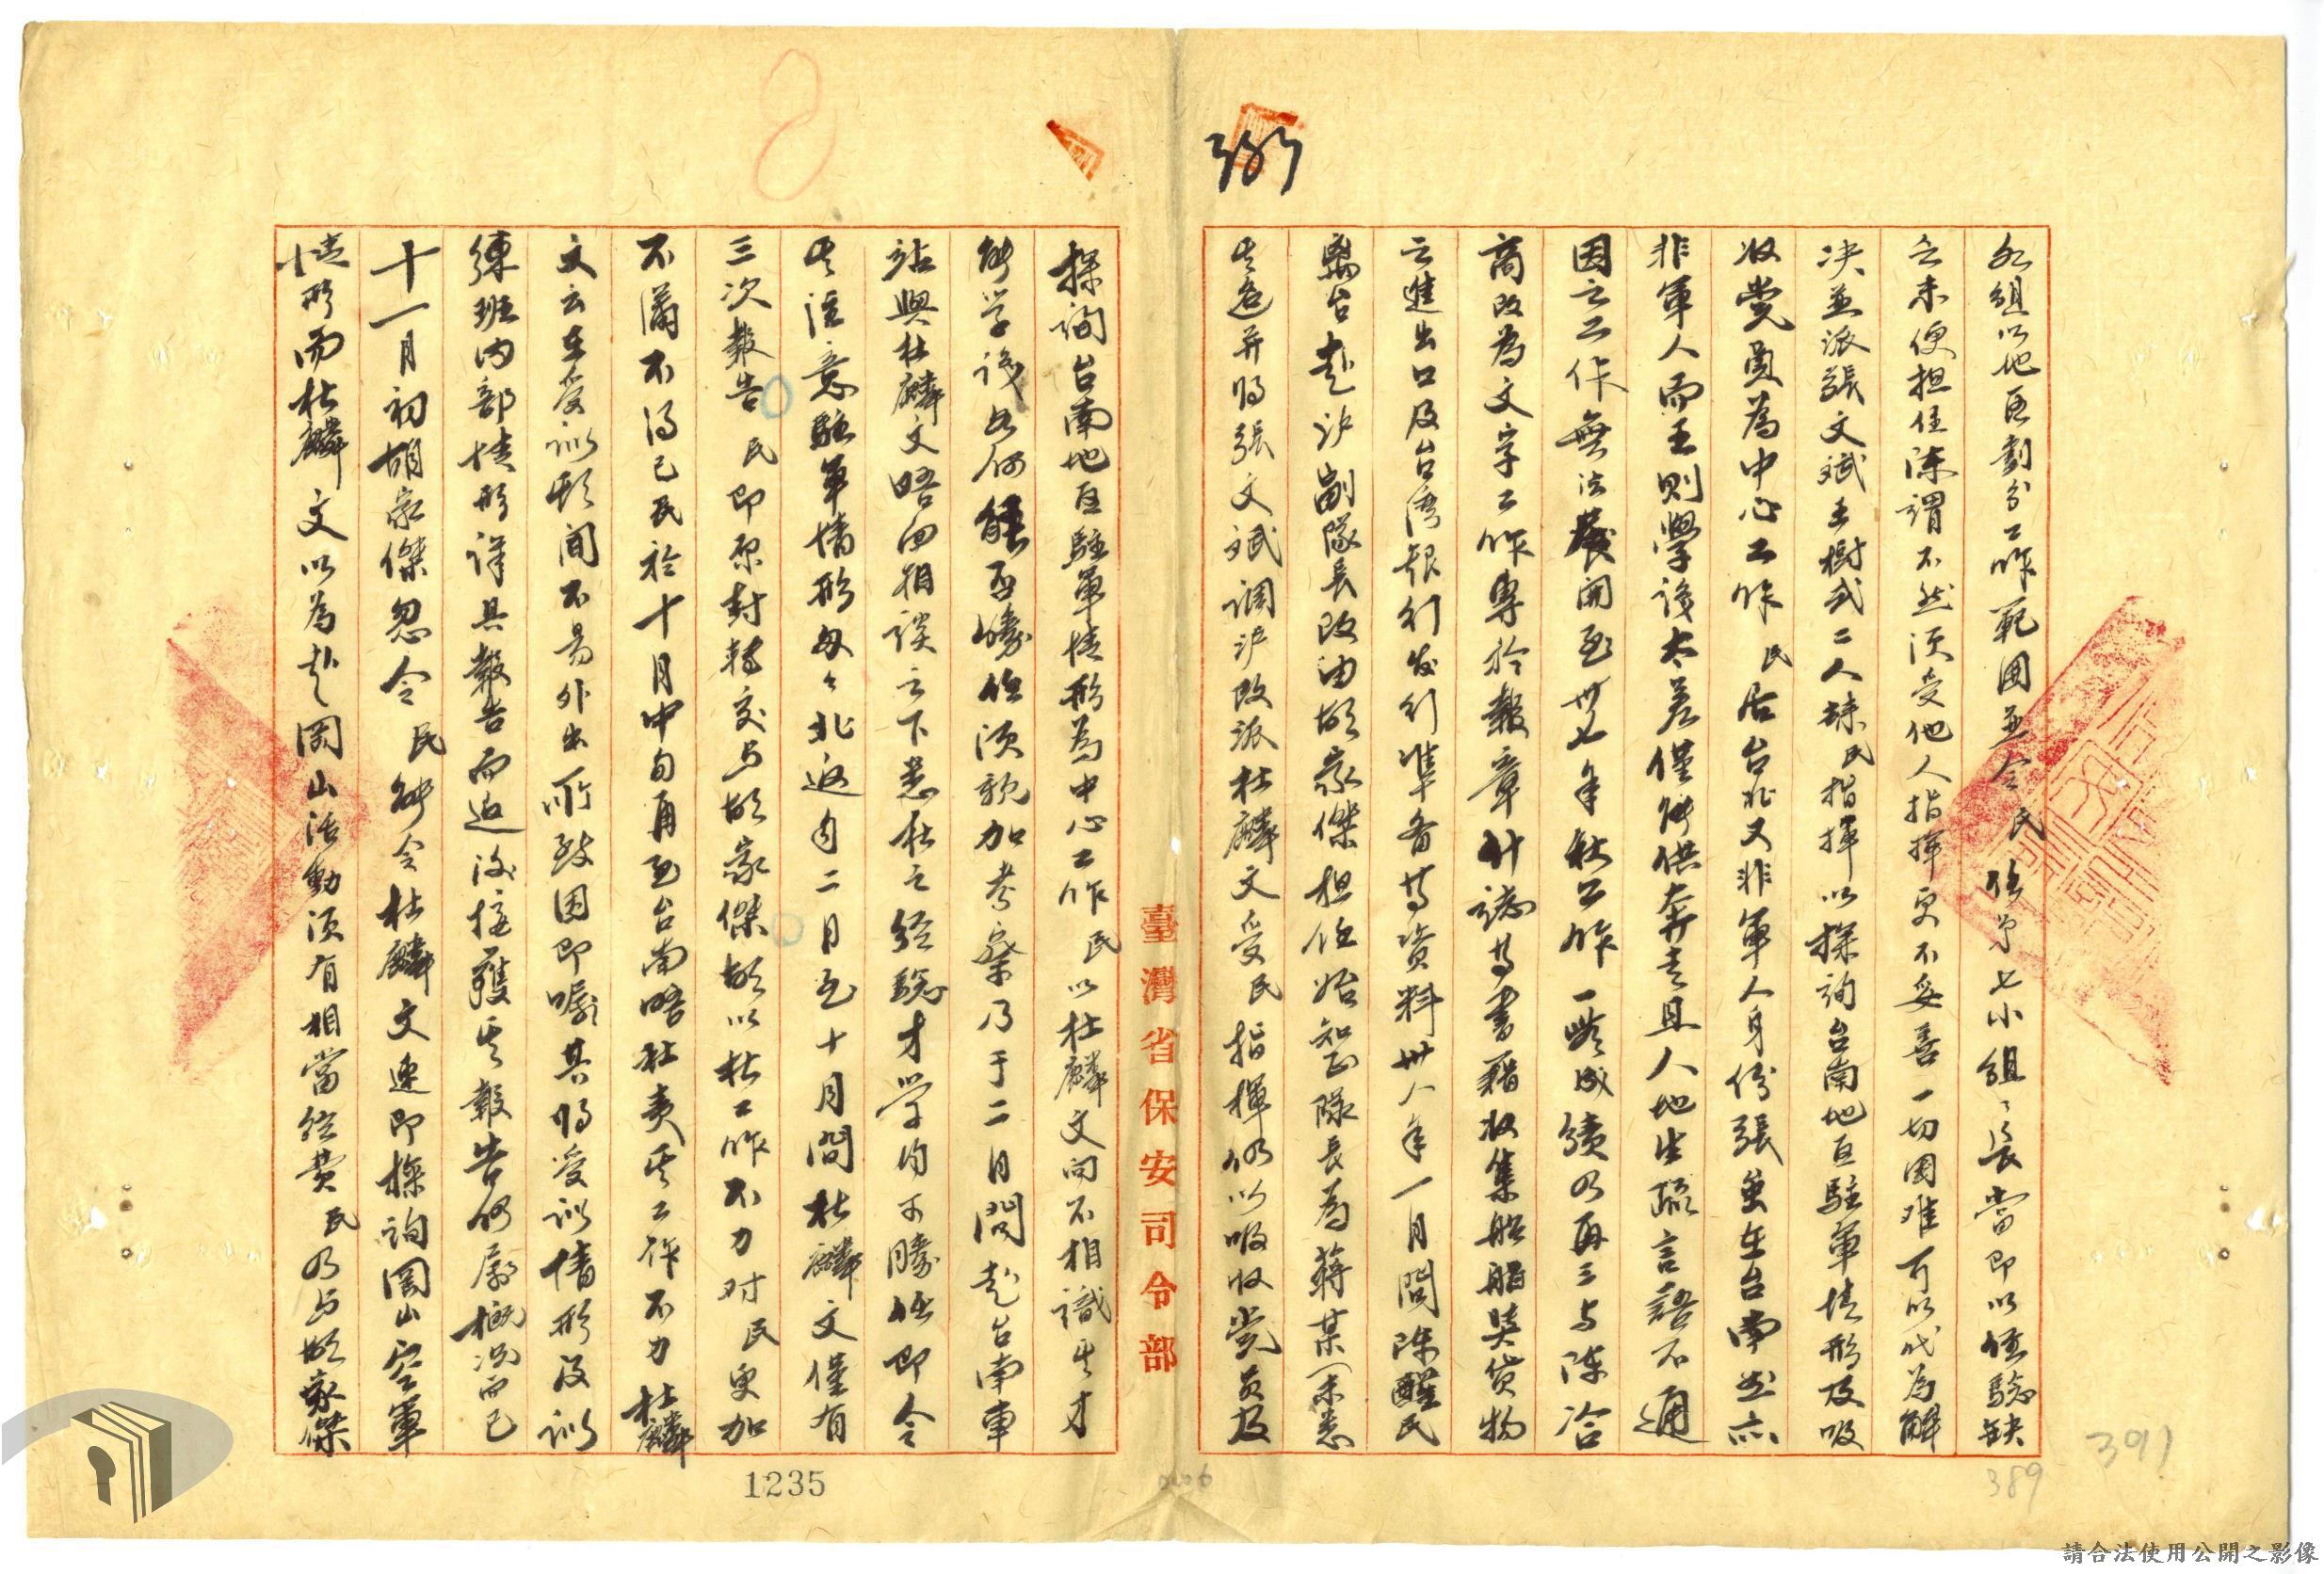 組以地區劃分工作範圍並令民任第七小組組長當即以經驗缺
乏未便担任陳謂不然須受他人指揮更不妥善一切困难可以代為解
决並派張文斌王樹武二人隸民指揮以探詢台南地區駐軍情形及吸
收党員為中心工作民居台北又非軍人身份張王在台南然亦
非軍人而王則學識太差僅能供奔走且人地生疏言語不通
因之工作無法展開至卅七年秋工作一無成績乃再三与陳洽
商改為文字工作專於報章什誌等書籍收集船舶與貨物
之進出口及台湾銀行发行準备等資料卅八年一月間陈醒民
離台赴沪副隊長改由胡家傑担任始知正隊長為蔣某(未悉
其名)并将張文斌調沪改派杜麟文受民指揮仍以吸收党員及
臺灣省保安司令部
探詢台南地區駐軍情形為中心工作民以杜麟文向不相識其才
能学識如何能否勝任須親加考察乃于二月間赴台南車
站與杜麟文晤面相談之下悉杜之经驗才学均可勝任即令
其注意駐軍情形每々北返自二月至十月間杜麟文僅有
三次報告民即原封轉交与胡家傑胡以杜工作不力对民更加
不滿不得已民於十月中旬再至台南晤杜責其工作不力杜麟
文云在受訓期間不易外出所致因即囑其将受訓情形及訓
練班内部情形詳具報告而返後接獲其報告仍屬概况而已
十一月初胡家傑忽令民飭令杜麟文速即探詢岡山空軍
情形而杜麟文以為赴岡山活動須有相當经費民乃与胡家傑
1235
389
391
請合法使用公開之影像